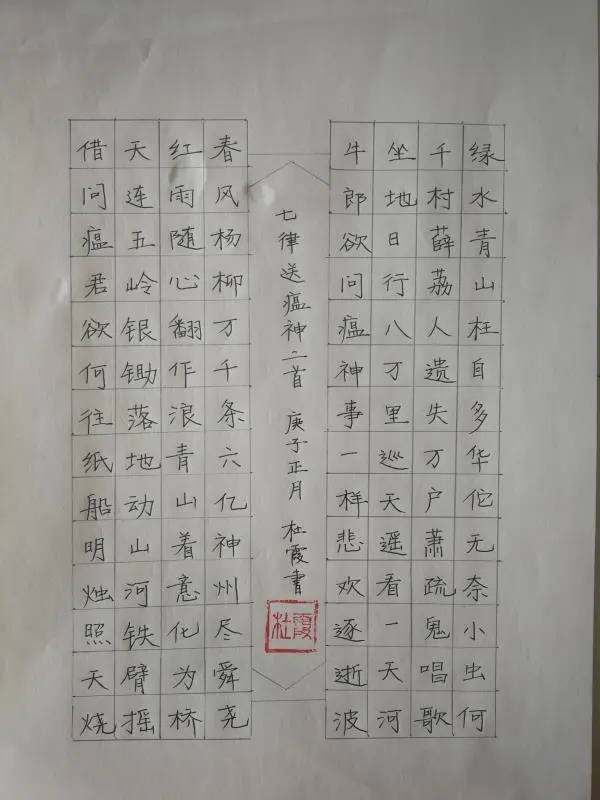 绿水青山枉自多华佗无奈小虫何
千村薛荔人遗失万户萧疏鬼唱歌
坐地日行八万里巡天遥看一天河
牛郎欲问瘟神事一样悲欢逐逝波
七律送瘟神二首 庚子正月 杜霞书
杜霞
春风杨柳万千条六亿神州尽舜尧
红雨随心翻作浪青山着意化为桥
天连五岭银锄落地动山河铁臂摇
借问瘟君欲何往纸船明烛照天烧